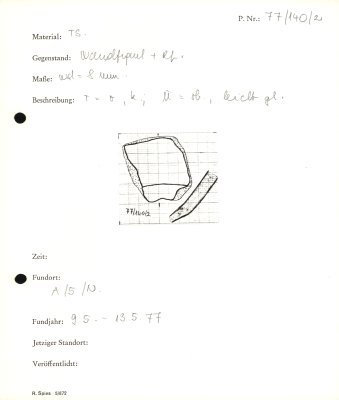 P. Nr.: 77/140/2
Material: TS.
Gegenstand: Wandfragm + Rf.
Maße: wd = 8 mm.
Beschreibung: T = o, k; Ü = ob, leicht gl.
77/140/2
Zeit:
Fundort:
A/5/N.
Fundjahr: 9.5. - 13.5.77
Jetziger Standort:
Veröffentlicht:
R. Spies 5/672